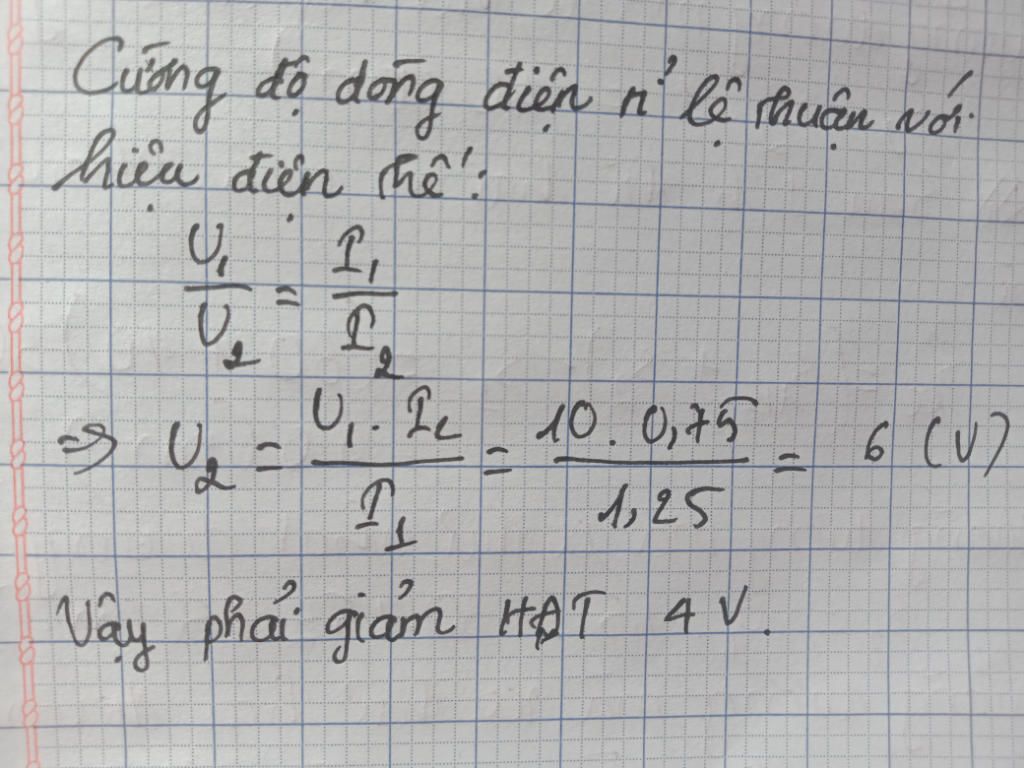 Cường độ dòng điện tỉ lệ thuận với
hiệu điện thế:
U₁/U₂ = I₁/I₂
=> U₂ = U₁.I₂/I₁ = 10.0,75/1,25 = 6 (V)
Vậy phải giảm HĐT 4 V.